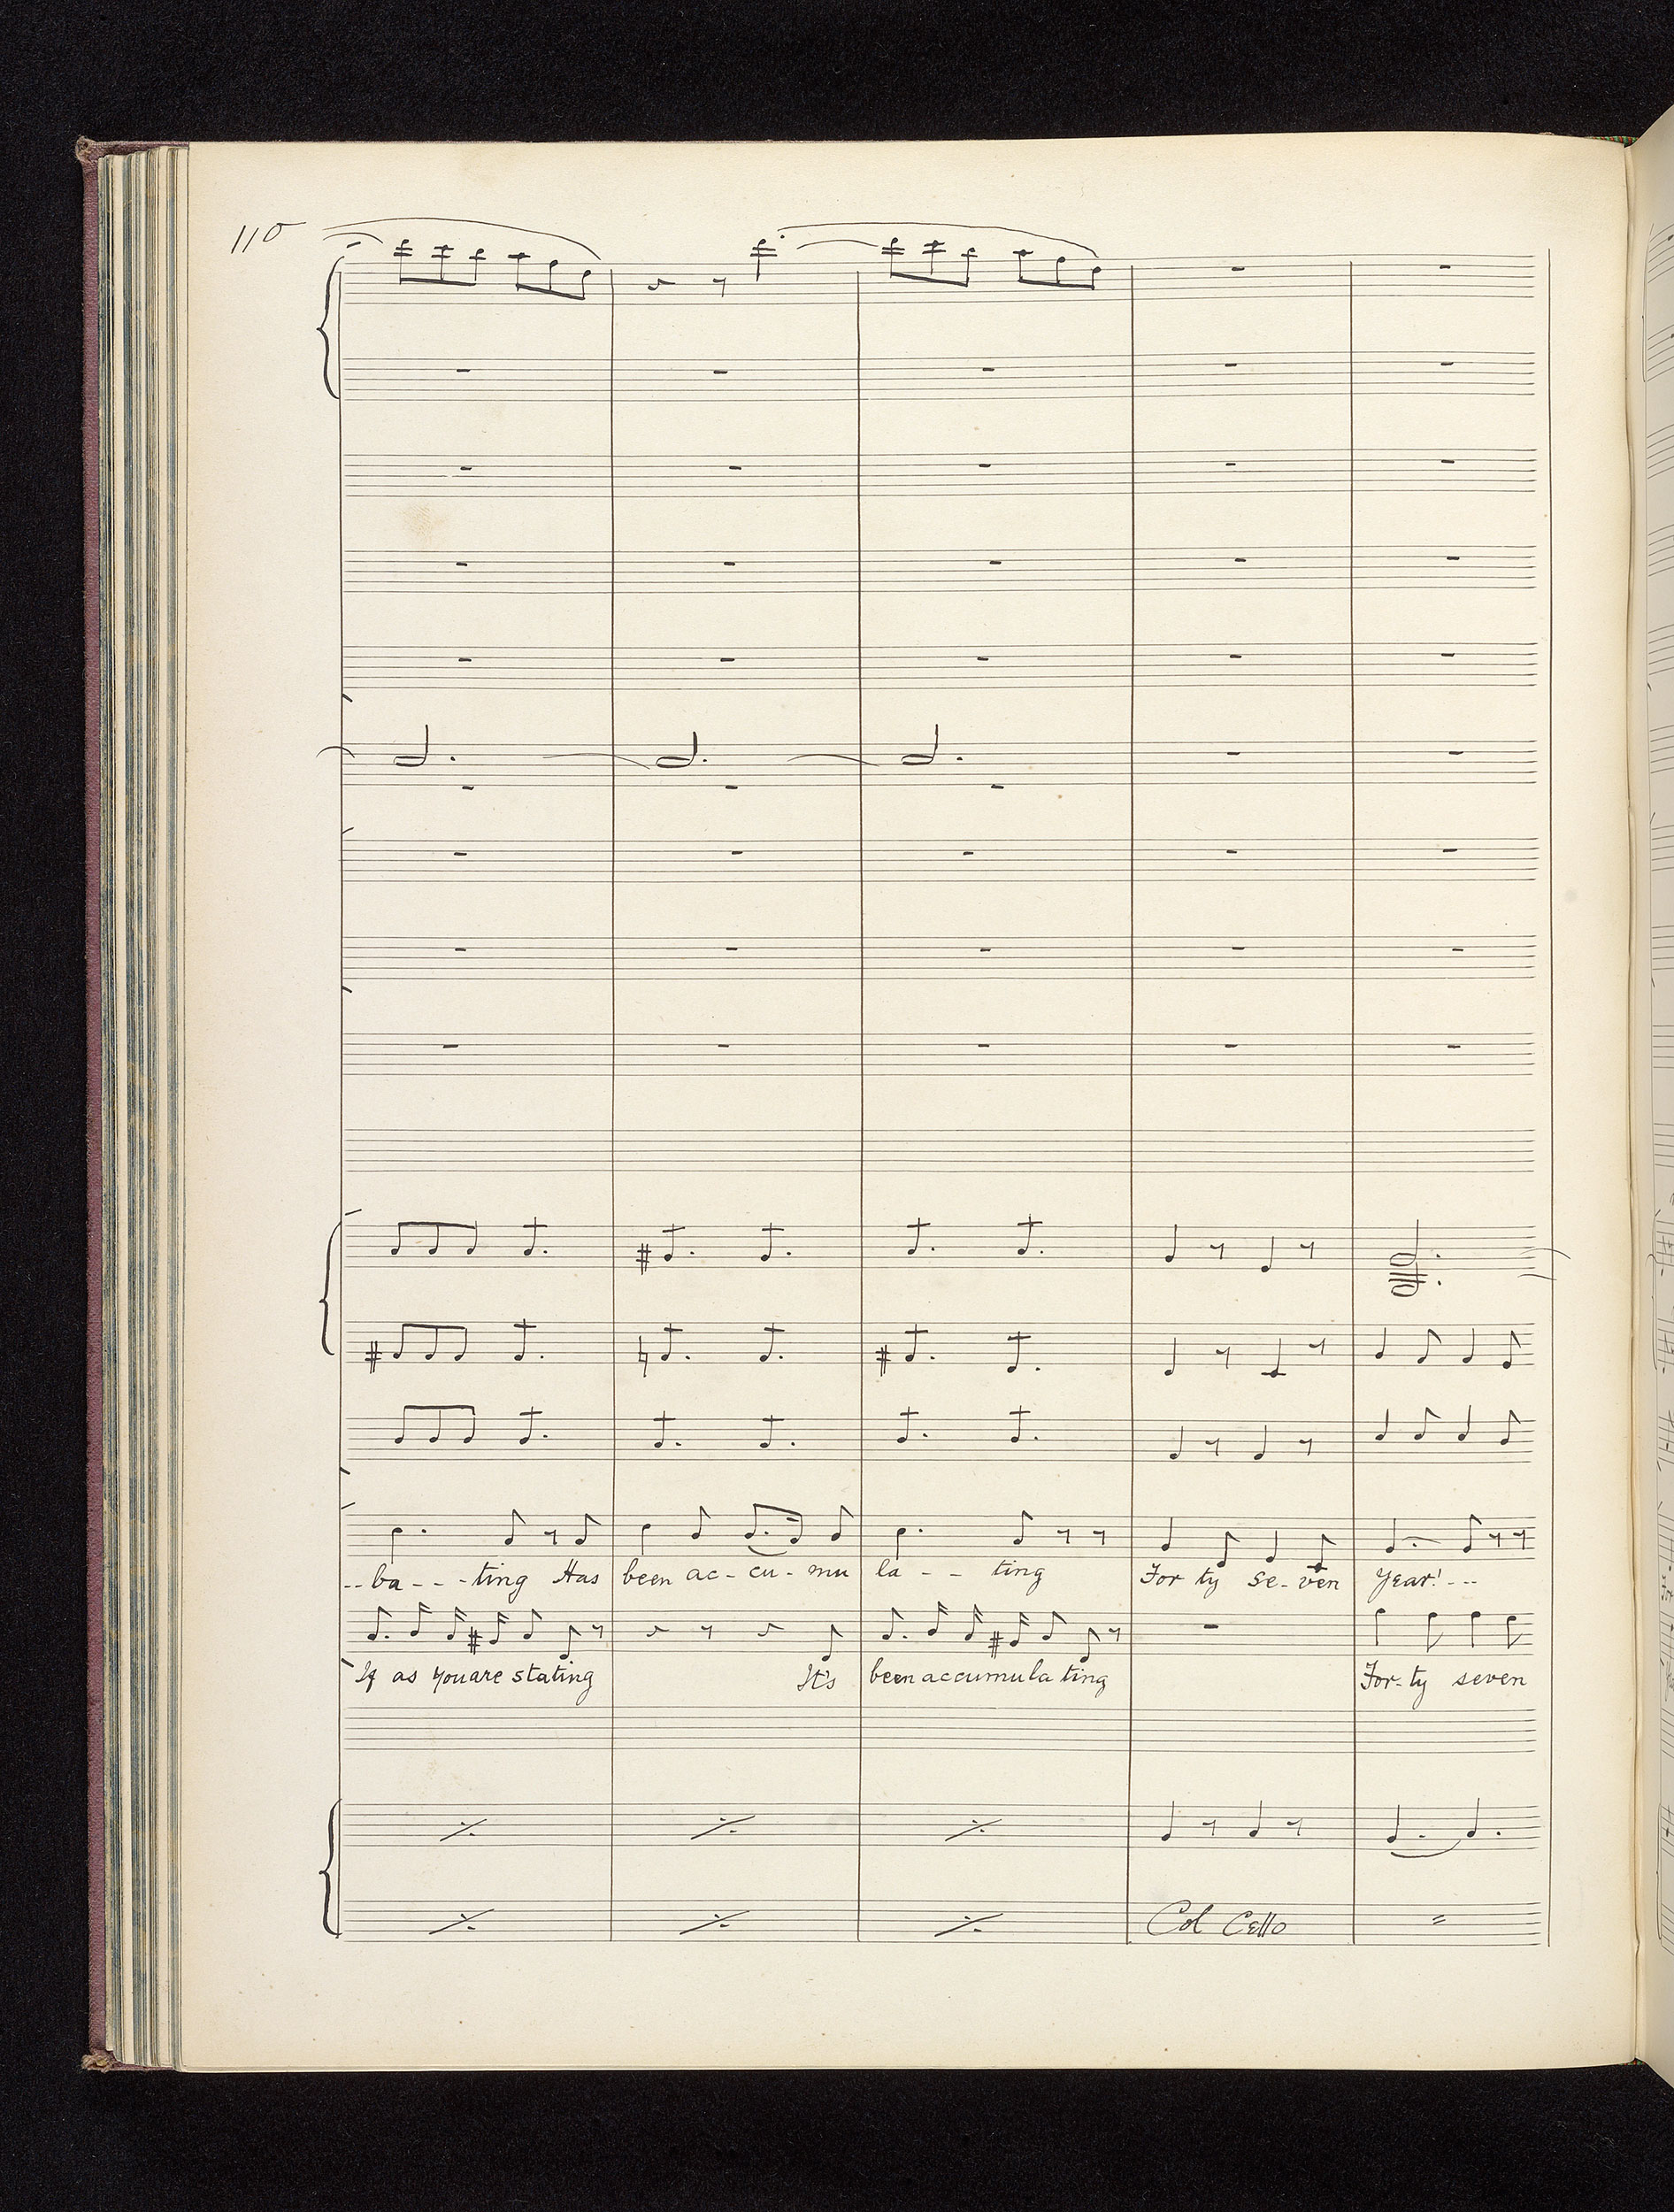 110
--ba---ting Has been ac-cu-mu la-- ting For ty se-ven Year!---
If as you are stating It's been accumula ting For-ty seven
Col Cello